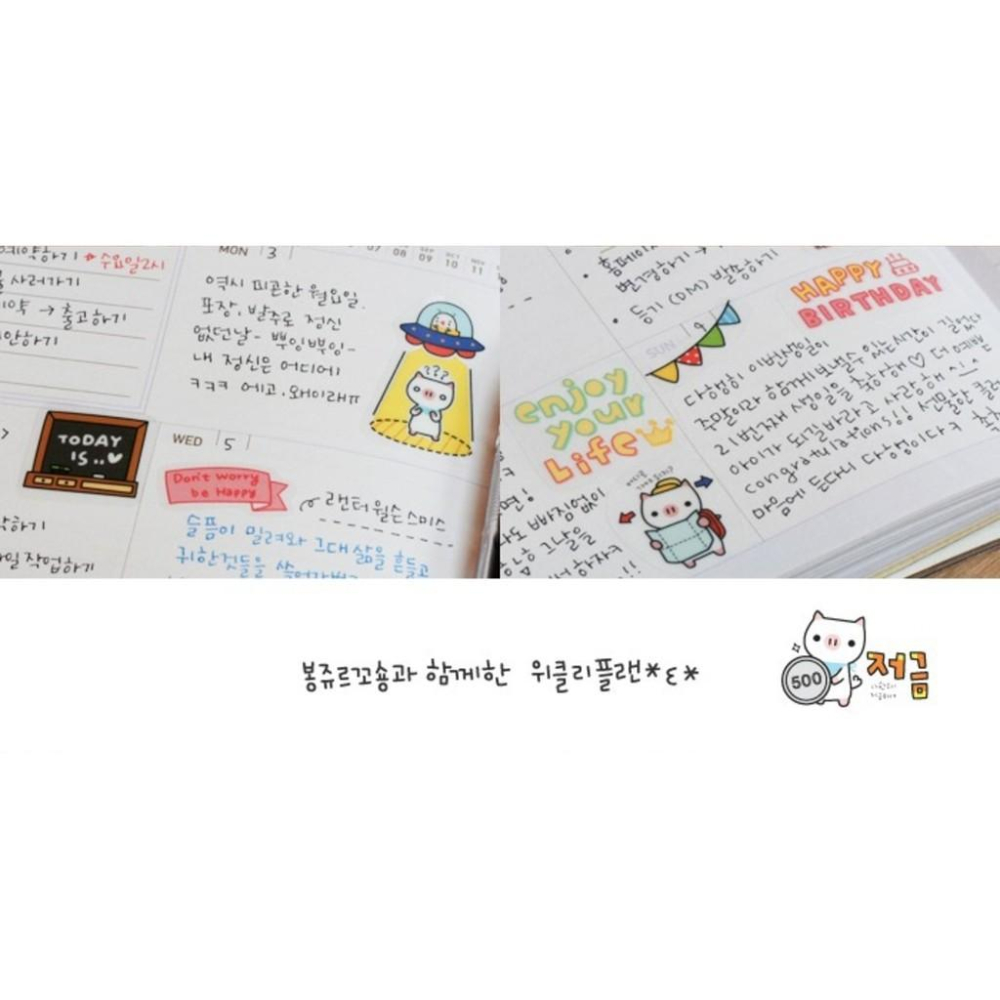 예약하기 *수요일2시
사러가기
→ 출고하기
안하기
MON 3
07 08 09 10 11
역시 피곤한 월요일.
포장, 발주로 정신
없던날~ 뿌잉뿌잉~
내 정신은 어디에
ㅋㅋㅋ 에고. 왜이래ㅠ
???
TODAY
IS..♥
WED 5
Don't worry
be Happy
랜터 윌슨 스미스
슬픔이 밀려와 그대 삶을 흔들고
귀한것들을 쓸어가버
하기
일 작업하기
• 홈페이
변경하기 →
• 등기 (DM) 발송하기
HAPPY
BIRTHDAY
SUN 9
다행히 이번생일이
주말이라 함께보낼수 있는시간이 길었다
21번째 생일을 축하해♡ 더 예쁜
아이가 되길바라고 사랑해
congratulations!! 선물한
마음에 든다니 다행이다ㅋ
enjoy
your
Life
면!
도 빠짐없이
그날을
하자ㅋ
!!
봉쥬르꼬숑과 함께한 위클리플랜*ε*
500
저금